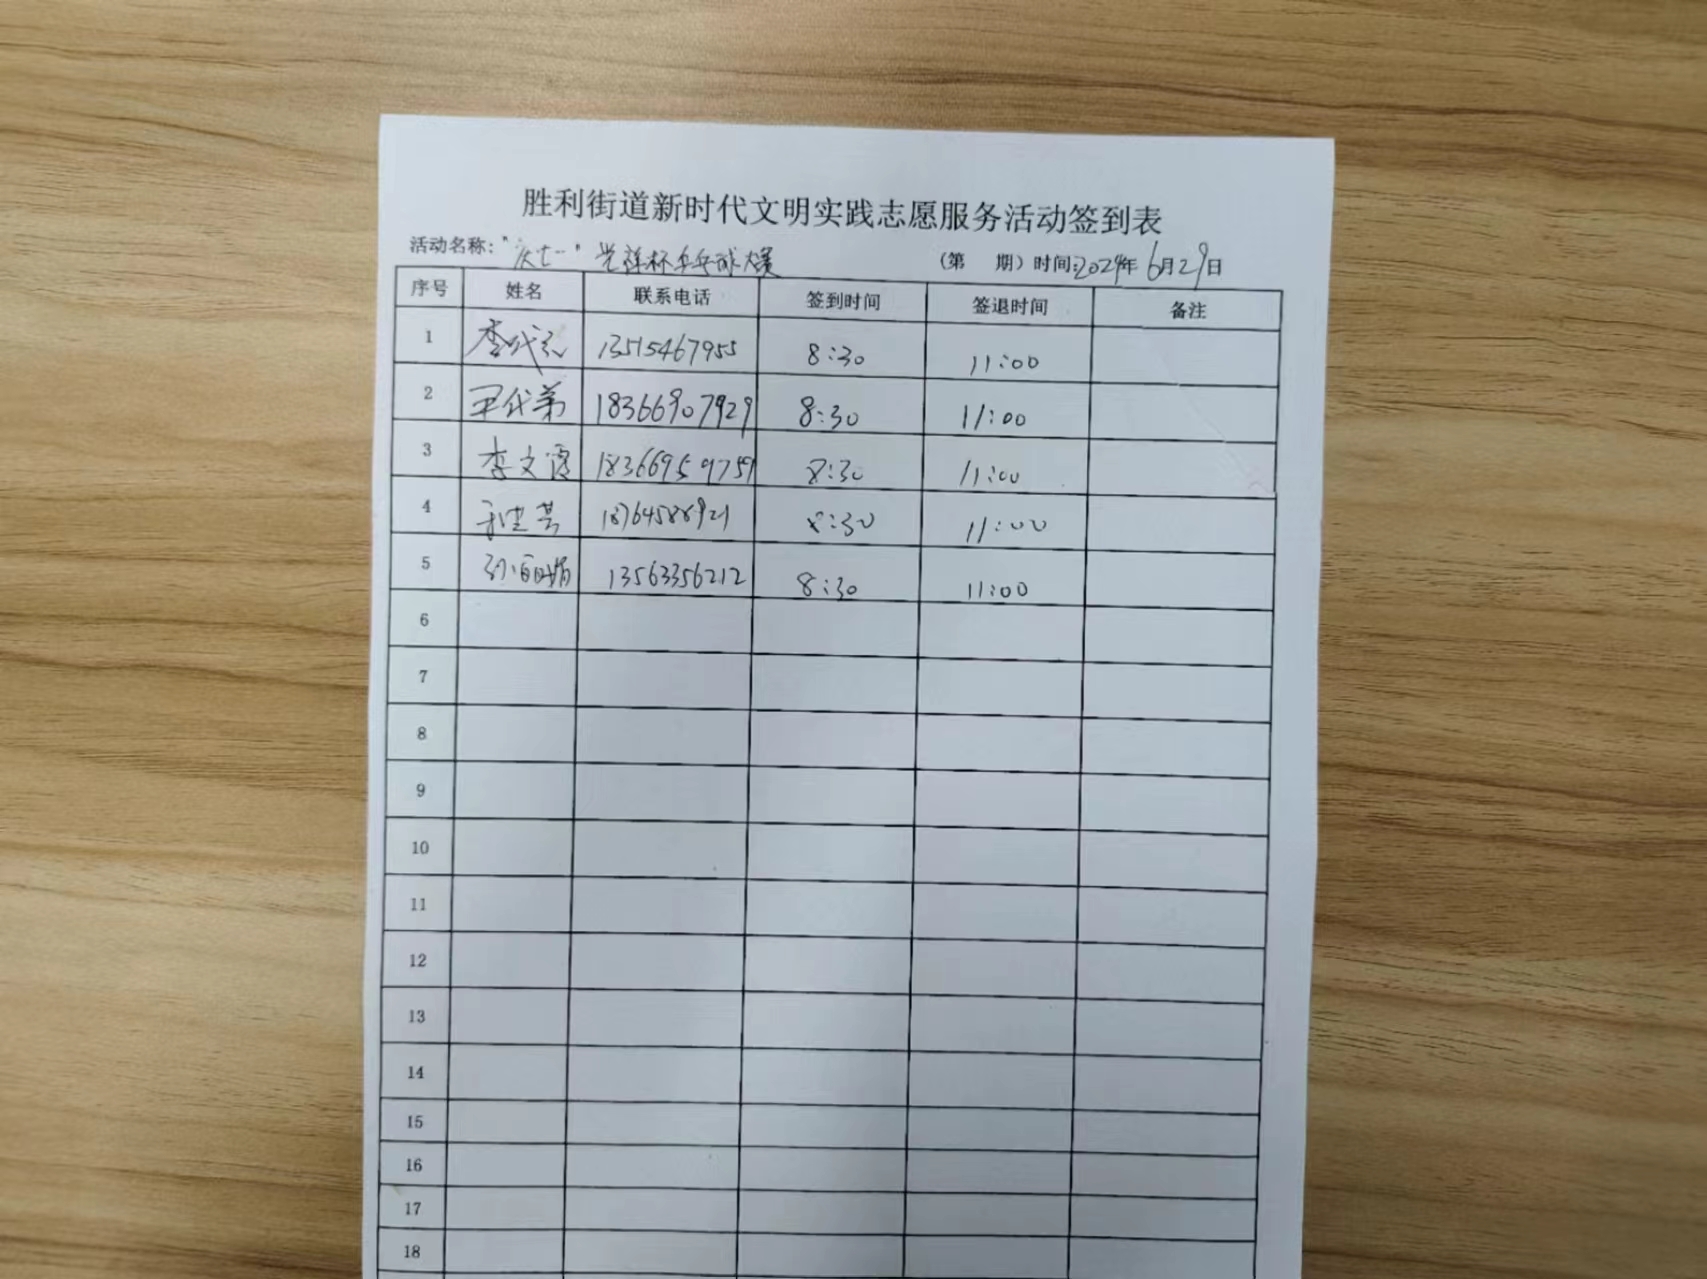 胜利街道新时代文明实践志愿服务活动签到表
活动名称："庆七一"党群杯乒乓球大赛 (第 期) 时间:2024年6月29日
序号 姓名 联系电话 签到时间 签退时间 备注
1 13515467955 8:30 11:00
2 18366907929 8:30 11:00
3 李文 18366959759 8:30 11:00
4 18764588921 8:30 11:00
5 13563356212 8:30 11:00
6
7
8
9
10
11
12
13
14
15
16
17
18